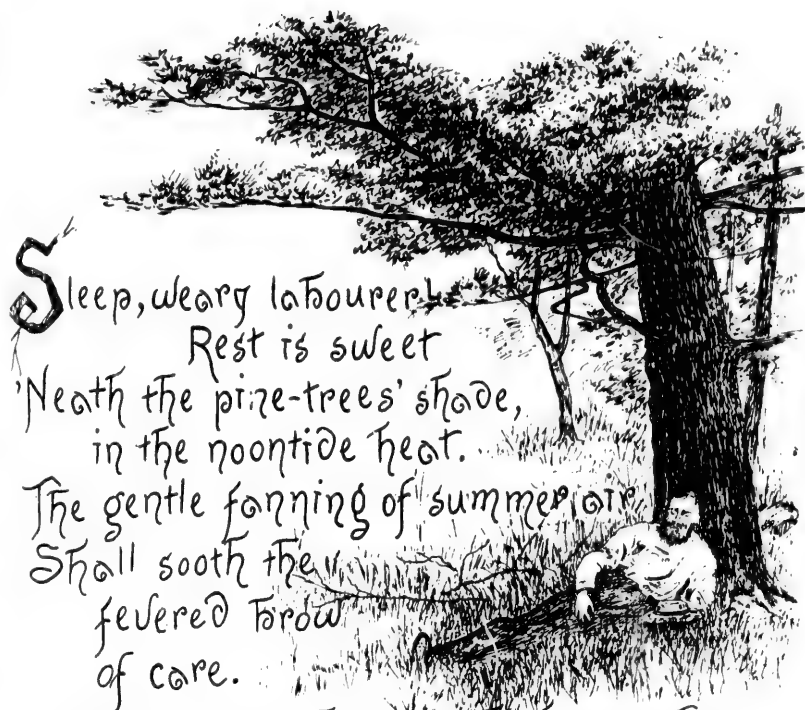 Sleep, weary labourer!
Rest is sweet
'Neath the pine-trees' shade,
in the noontide heat.
The gentle fanning of summer air
Shall sooth the
fevered brow
of care.